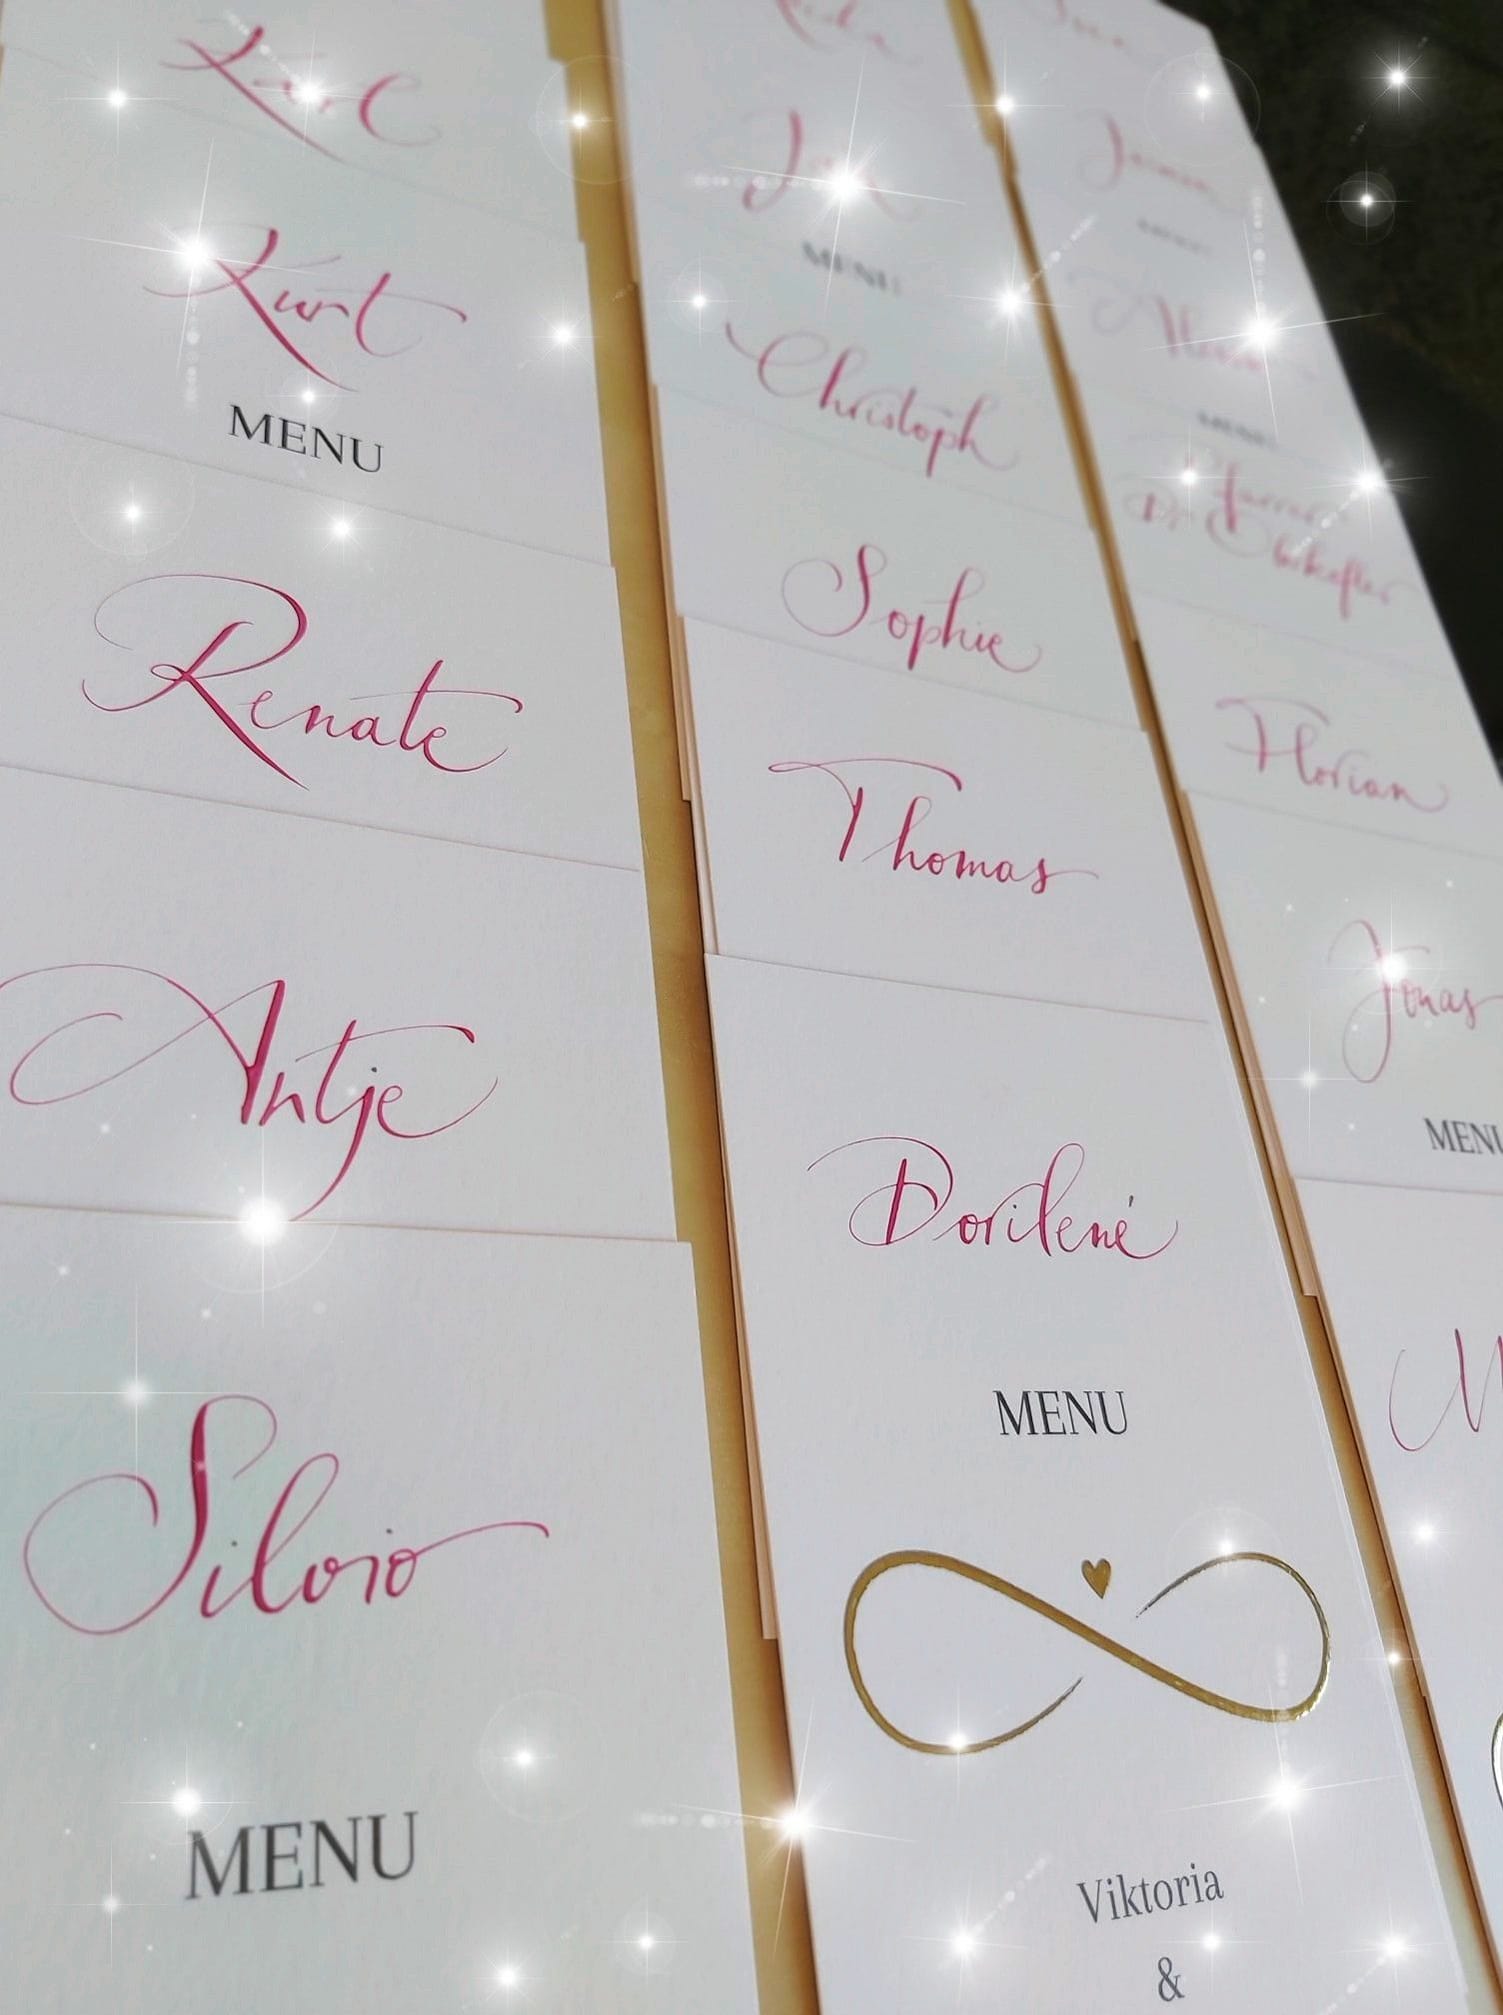 Karl
Kurt
MENU
Renate
Antje
Silvio
MENU
MENU
Christoph
Sophie
Thomas
Dorilené
MENU
Viktoria
&
MENU
Florian
Jonas
MENU